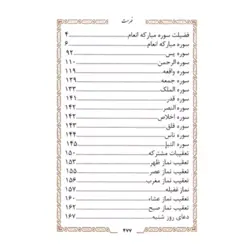 فهرست
فضیلت سوره مبارکه انعام ۴
سوره مبارکه انعام ۶
سوره یس ۹۲
سوره الرحمن ۱۱۰
سوره واقعه ۱۱۹
سوره جمعه ۱۲۹
سوره الملک ۱۳۳
سوره قدر ۱۴۱
سوره النصر ۱۴۲
سوره اخلاص ۱۴۲
سوره فلق ۱۴۳
سوره ناس ۱۴۴
سوره النبأ ۱۴۵
تعقیبات مشترکه ۱۵۰
تعقیب نماز ظهر ۱۵۳
تعقیب نماز عصر ۱۵۵
تعقیب نماز مغرب ۱۵۶
نماز غفیله ۱۵۷
تعقیب نماز عشاء ۱۶۰
تعقیب نماز صبح ۱۶۲
دعای روز شنبه ۱۶۷
۴۷۷